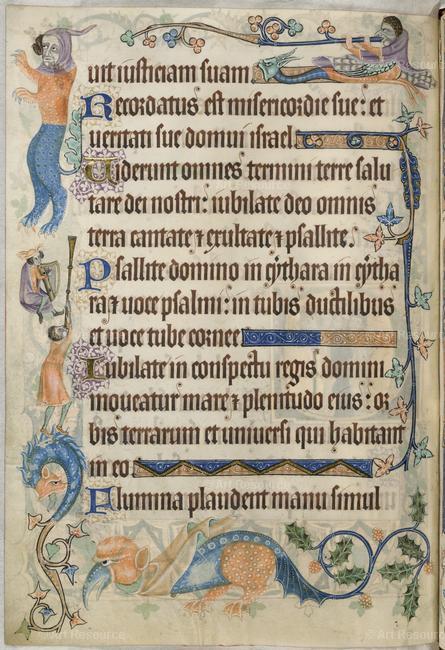 uit iusticiam suam
Recordatus est misericordie sue: et
ueritati sue domui israel.
Uiderunt omnes termini terre salu
tare dei nostri: iubilate deo omnis
terra cantate ⁊ exultate ⁊ psallite.
Psallite domino in cythara in cytha
ra ⁊ uoce psalmi: in tubis ductilibus
et uoce tube cornee
Iubilate in conspectu regis domini
moueatur mare ⁊ plenitudo eius: or
bis terrarum et uniuersi qui habitant
in eo
Flumina plaudent manu simul
© Art Resource
© Art Resource
© Art Resource